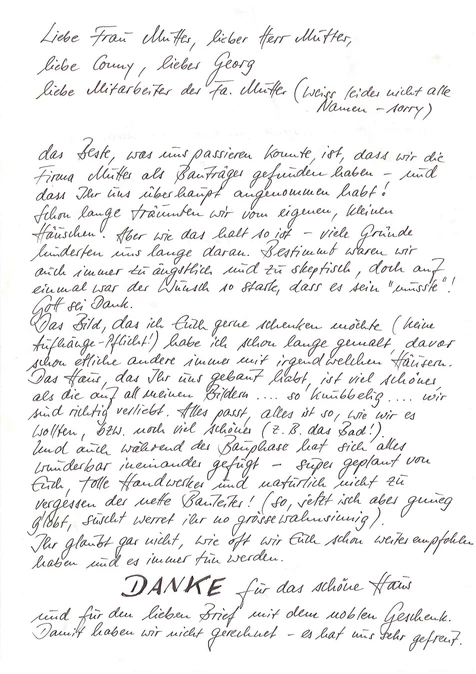 Liebe Frau Mutter, lieber Herr Mutter,
liebe Conny, lieber Georg
liebe Mitarbeiter der Fa. Mutter (weiss leider nicht alle
Namen - sorry)
das Beste, was uns passieren konnte, ist, dass wir die
Firma Mutter als Bauträger gefunden haben - und
dass Ihr uns überhaupt angenommen habt!
Schon lange träumten wir vom eigenen, kleinen
Häuschen. Aber wie das halt so ist - viele Gründe
hinderten uns lange daran. Bestimmt waren wir
auch immer zu ängstlich und zu skeptisch, doch auf
einmal war der Wunsch so stark, dass es sein "musste"!
Gott sei Dank.
Das Bild, das ich Euch gerne schenken möchte (keine
Aufhänge-Pflicht!) habe ich schon lange gemalt, davor
schon etliche andere immer mit irgendwelchen Häusern.
Das Haus, das Ihr uns gebaut habt, ist viel schöner,
als die auf all meinen Bildern .... so knubbelig .... wir
sind richtig verliebt. Alles passt, alles ist so, wie wir es
wollten, bzw. noch viel schöner (z.B. das Bad!)
Und auch während der Bauphase hat sich alles
wunderbar ineinander gefügt - super geplant von
Euch, tolle Handwerker und natürlich nicht zu
vergessen der nette Bauleiter! (so, jetzt isch aber gnueg
globt, süscht werret ihr no grössewahnsinnig).
Ihr glaubt gar nicht, wie oft wir Euch schon weiter empfohlen
haben und es immer tun werden.
DANKE für das schöne Haus
und für den lieben Brief mit dem noblen Geschenk.
Damit haben wir nicht gerechnet - es hat uns sehr gefreut.